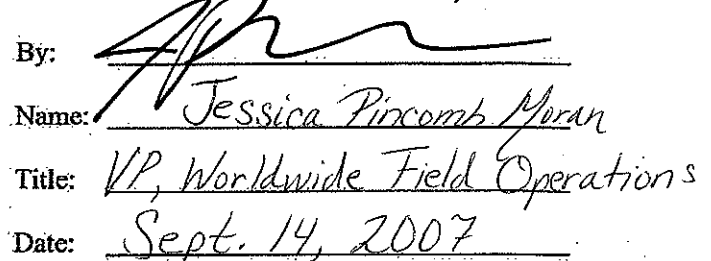 By:
Name: Jessica Pincomb Moran
Title: VP, Worldwide Field Operations
Date: Sept. 14, 2007